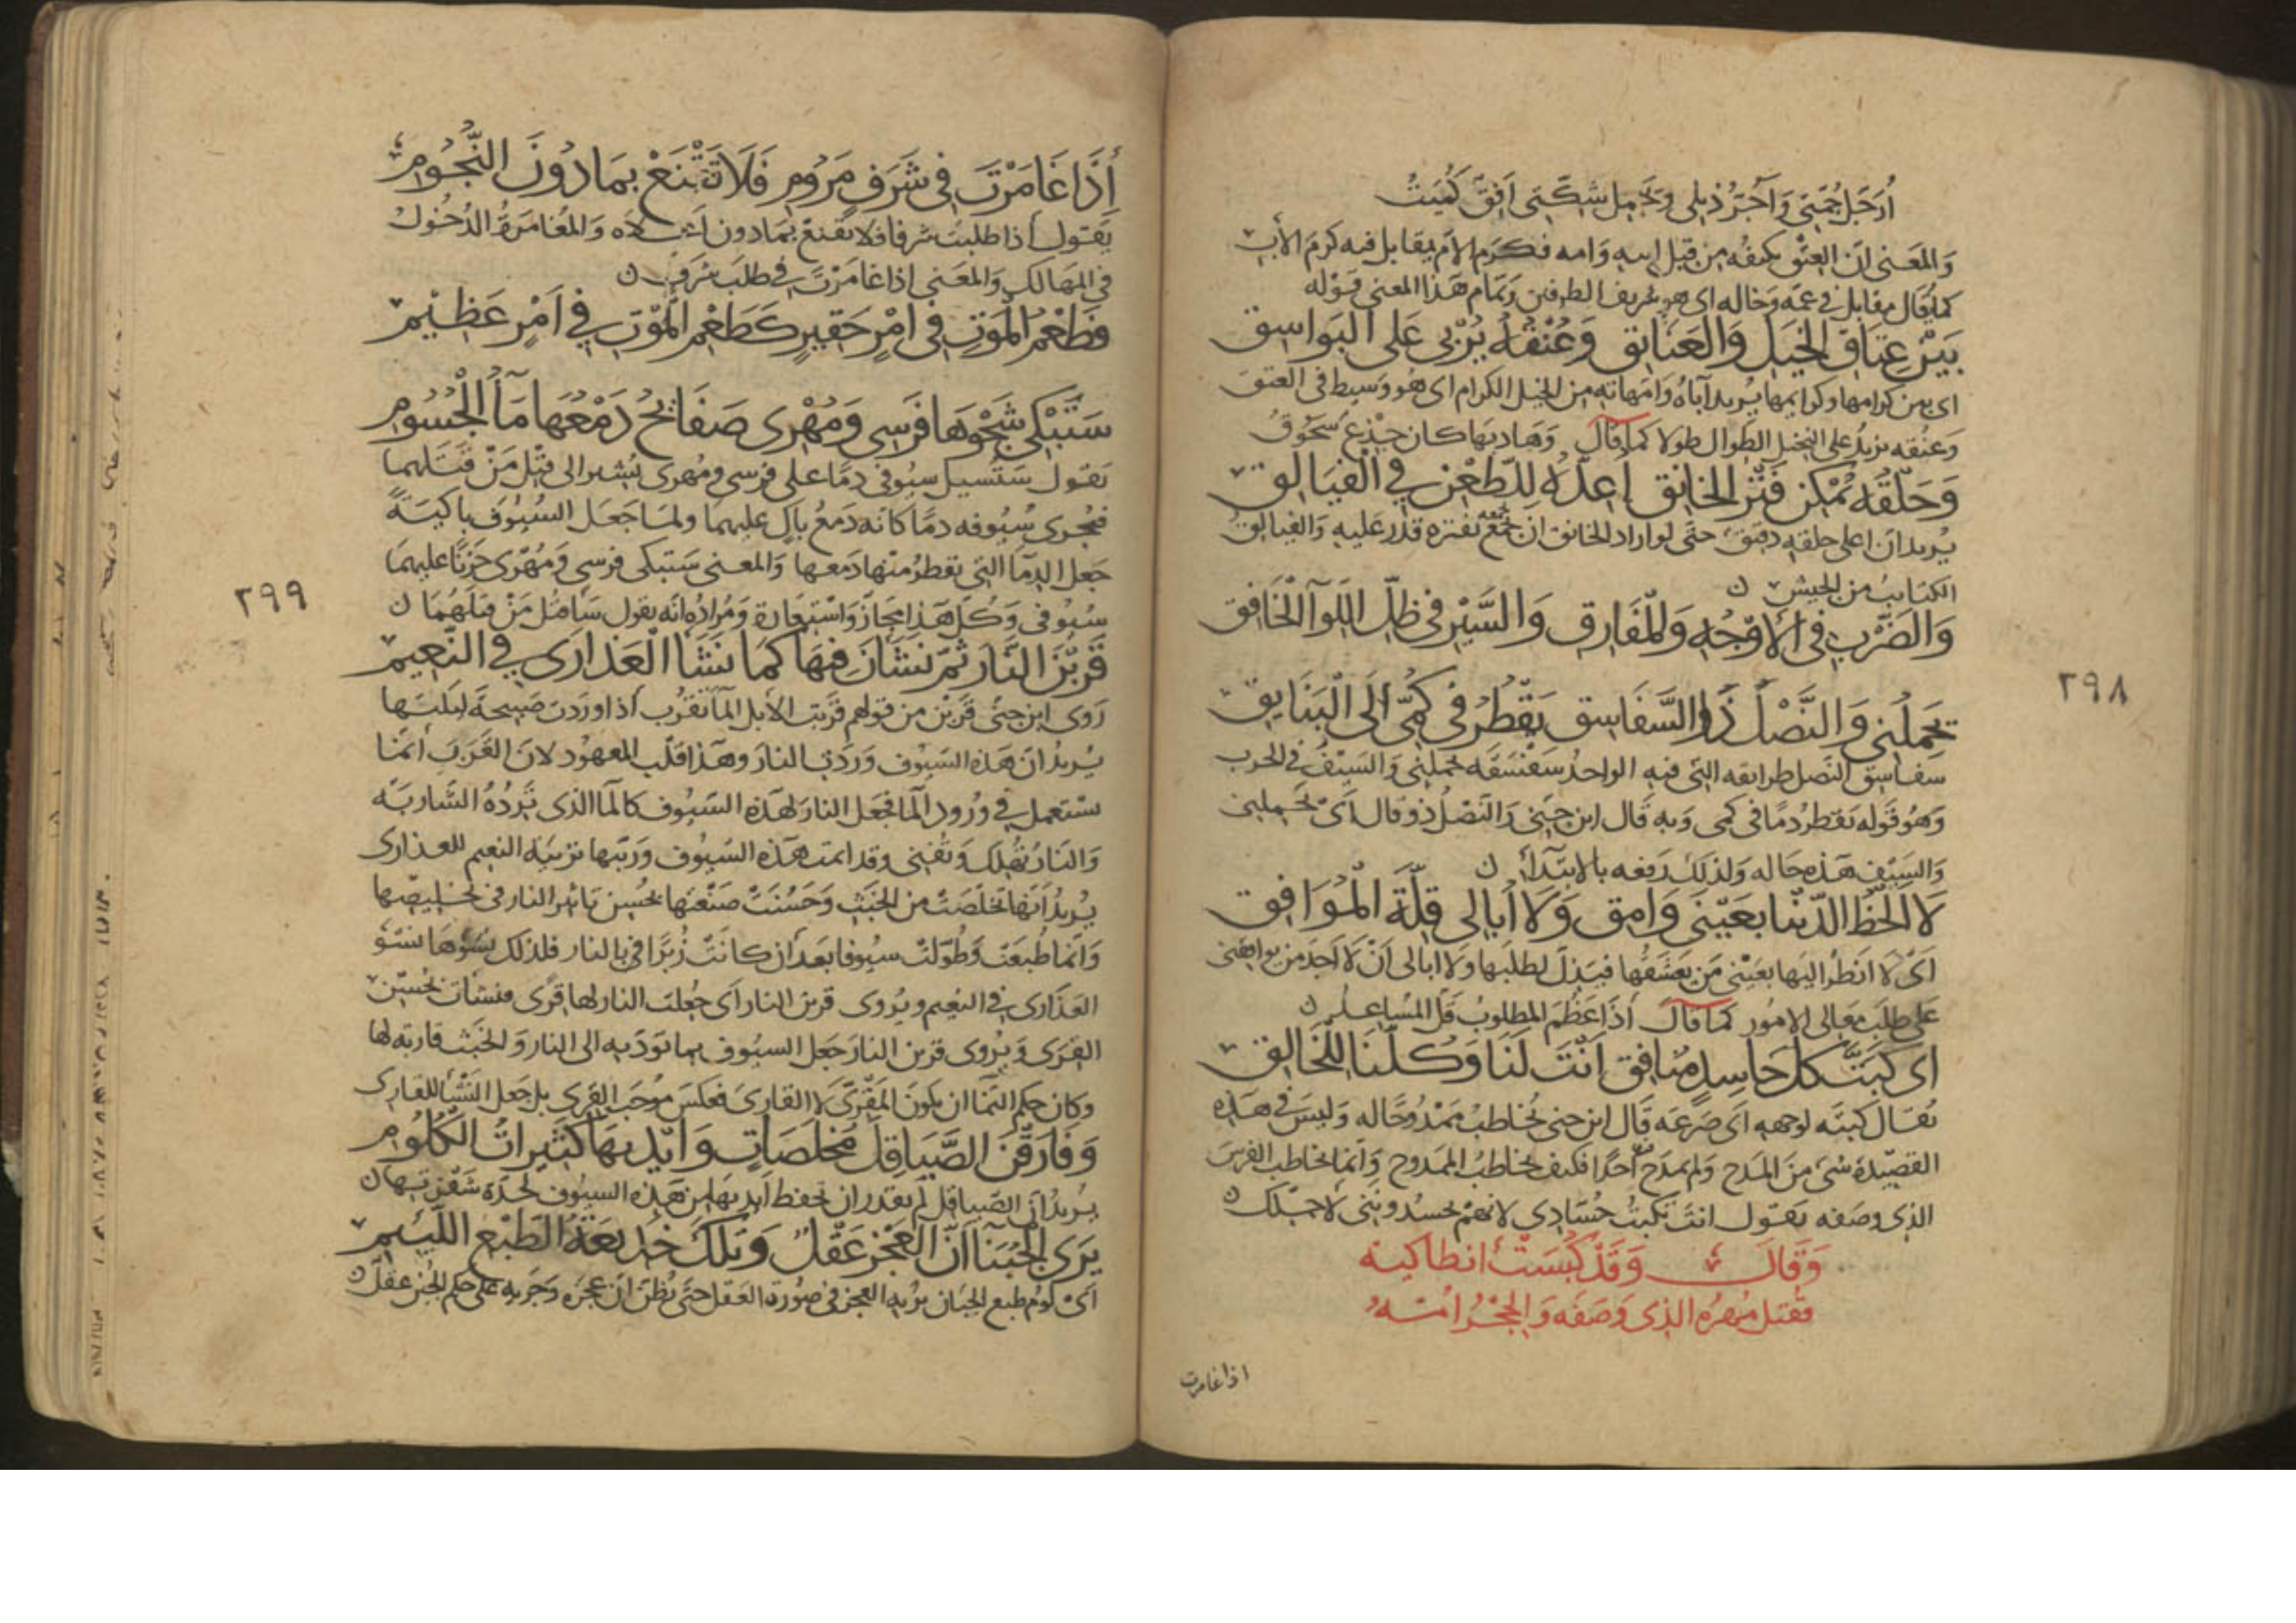 أُرَجِّل جُمَّتي وَأجُرُّ ذيلي وتحمل شِكَّتي أفق كُمَيتُ
وَالمعَنى انَ العِتق يكنفُه من قبل ابيه وَامه فكرم الامّ يقابل فيه كرَم الأب
كما يُقال مقابل في عمّه وَخاله اى هو شريف الطرفين وَتمام هَذا المعنى قَوْله
بَيْن عِتَاق الخيَل وَالعَتَائق وَعُنْقُهُ يُرْبى عَلى البَوَاسِق
اى بين كرامها وكرايمها يُريد آباهُ وَامَهاته من الخيل الكرام اى هُو وَسيط في العتق
وَعنُقه يزيدُ على النخيل الطوال طولا كما قال وَهَاديهَا كان جِذْع سَحُوق
وَحَلْقُهُ يُمْكِن فِتْرَ الخانِق أُعِدّهُ لِلطّعْن في الفَيَالق
يُريد ان اعلى حلقه دقيق حتَى لو اراد الخانق ان يجمع بفتره قدر عَليه وَالفيالق
الكتايبُ من الجيش
وَالضَّرْبِ في الأوْجُه وَالمفَارِق وَالسَّيْر في ظلّ اللوآ الخَافِق
يَحمِلُني وَالنَّصْلُ ذُو السَّفَاسِق يَقْطُرُ في كُمّي إلَى الْبَنَايِق
سفاسق النصل طرايقه التي فيه الواحدُ سفسقه يحملني وَالسَيْفُ في الحرب
وَهُو قَوله يَقطر دمًا في كمي وَبه قَال ابن جني وَالنَصْل ذو قال أىْ يَحملني
وَالسَيْف هَذه حَاله وَلذلكَ رَفعه بالابتدآ
لا ألحَظُ الدّنْيا بعَيْنَي وَامِق وَلا أُبَالي قِلّةَ الْمُوَافِق
اىْ لا انظرُ اليهَا بعَيْني مَن يَعشَقُها فيَذِلّ لطلبَها ولا ابالى انْ لا اجدَ من يوافقني
على طلب معَالى الامُور كما قال اذَا عَظُمَ المطلوبُ قَلّ المُسَاعدُ
اى كَبْتَ كُلّ حَاسِدٍ مُنَافِق أنْتَ لَنَا وَكُلُّنَا لِلخَالِق
يُقال كبتَه لوجهه اى صَرعَه قَال ابن جني يُخاطبُ ممدُوحًا له وَليسَ في هَذه
القصيْدة شئ منَ المدح وَلم يمدَح أحدًا فكيف يخاطبُ الممدوح وَانما يخاطب الفرسَ
الذي وصَفه يَقول انتَ تكبتُ حُسّادي لانهمْ يحسُدونَني لاجْلك
وَقَالَ وَقَدْ كُبِسَتْ انطاكية
فقتل مُهرُه الذى وَصَفه وَالحِجْرُ امّه
اذا غامرت
٢٩٨
إذَا غَامَرْتَ في شَرَفٍ مَرُومِ فَلَا تَقْنَعْ بمَا دُونَ النُّجُومِ
يَقول اذا طلبتَ شرفا فلا تقنع بمَا دون اَعلاه وَالمُغامَرة الدُخول
في المهَالك وَالمعنى اذا غامَرْتَ في طلب شرف
فطَعْمُ المَوْتِ في امْرٍ حَقيرٍ كَطَعْمِ المَوْتِ في أمْرٍ عَظِيْمِ
سَتَبْكي شَجْوَهَا فَرَسي وَمُهْرى صَفَائحُ دَمْعُهَا مَآءُ الْجُسُومِ
يَقول سَتسيل سيُوفي دمًا على فرسي ومُهرى يُشير الى قتْل مَنْ قتَلهما
فيجرى سُيُوفه دمًا كانه دَمعُ باكٍ عليهما ولما جعَل السيُوف باكيَةً
جَعل الدمَآ التي يقطرُ منْها دَمعها وَالمعنى سَتبكى فرَسي وَمُهرى حزنًا عليهما
سيُوفي وَكل هَذا مجَاز وَاستعَارة وَمُراده انه يقول سَاقتل مَنْ قتلهُما
قَرُبْنَ النّارَ ثمّ نشَأنَ فيهَا كمَا نَشَأ الْعَذَارَى في النّعِيمِ
رَوى ابن جنّي قَرُبْن من قولهم قَربَت الابل المآ تقرُب اذا وردت صَبيحَة ليلتهَا
يُريد ان هَذه السيُوف وَرَدت النار وَهذا قلب المعهُود لان القَرَبَ انما
يستعمل في وُرود المآ فجَعل النار لهذه السيُوف كالمآ الذي تَردُهُ الشاربَة
وَالنار تُهلك وَتُفنى وقد انمت هَذه السيُوف وَرَبّتها تربيَة النعيم للعذارى
يُريدُ أنها تخلصَت من الخبَث وَحَسُنَتْ صَنْعتها بحُسن تَاثير النار في تخليصها
وَانما طُبعَتْ وَطُوّلتْ سيُوفا بعدَ ان كانَتْ زُبَرًا في النار فلذلك نشوها نشو
العَذَارى في النعيم ويُروى قرين النار اى جُعلت النار لها قرًى فنشأت بحُسْن
القرَى وَيُروى قرين النارَ جَعل السيُوف بما تؤدّيه الى النار وَالخبَث قاريَة لها
وكان حكم النمَا ان يكونَ المَقْرىّ لا القارىَ فعكسَ مُوجَب القِرى بل جَعل النشأ للقارى
وَفَارَقْنَ الصَّيَاقِلَ مُخلَصَاتٍ وَأيْدِيهَا كَثِيرَاتُ الْكُلُومِ
يُريدُ أن الصيَاقل لم يقدر ان تحفظ أيديهَا من هَذه السيُوف لحدّة شفرتها
يَرَى الْجُبَنَآءُ أنّ الْعَجْزَ عَقْلٌ وَتِلكَ خَدِيعَةُ الطّبْع اللّئِيمِ
اىْ لؤم طبع الجبَان يُريه العَجز في صُورة العَقل حتى يظن ان عجزه وَجَريه على حكم الجُبن عقل
٢٩٩